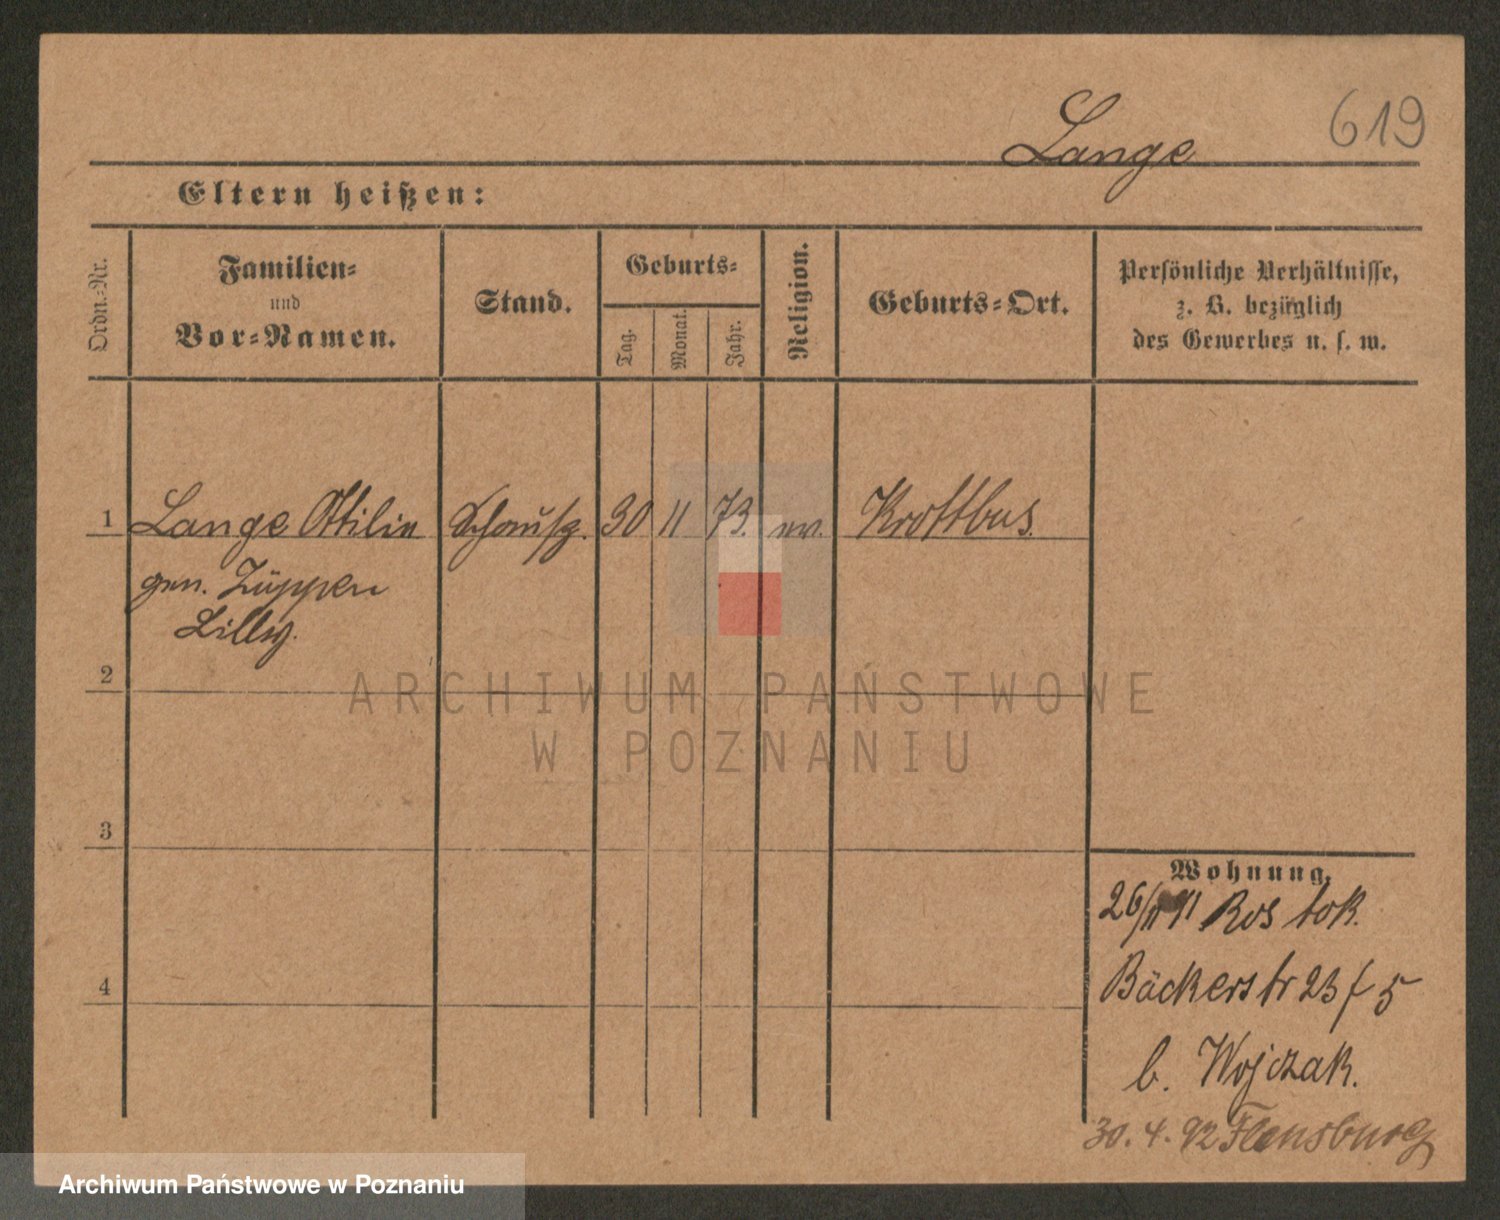 Lange 619
Eltern heißen:
Ordn.-Nr.
Familien-
und
Vor-Namen.
Stand.
Geburts-
Tag.
Monat.
Jahr.
Religion.
Geburts-Ort.
Persönliche Verhältnisse,
z. B. bezüglich
des Gewerbes u. s. w.
1 Lange Ottilie Schausp. 30 11 73. ev. Krottbus.
gen. Züppen
Lilly.
2
3
4
Wohnung.
26/11 91 Rostok.
Bäckerstr 23 f 5
b. Wojczak.
30. 4. 92 Flensburg
ARCHIWUM PAŃSTWOWE
W POZNANIU
Archiwum Państwowe w Poznaniu